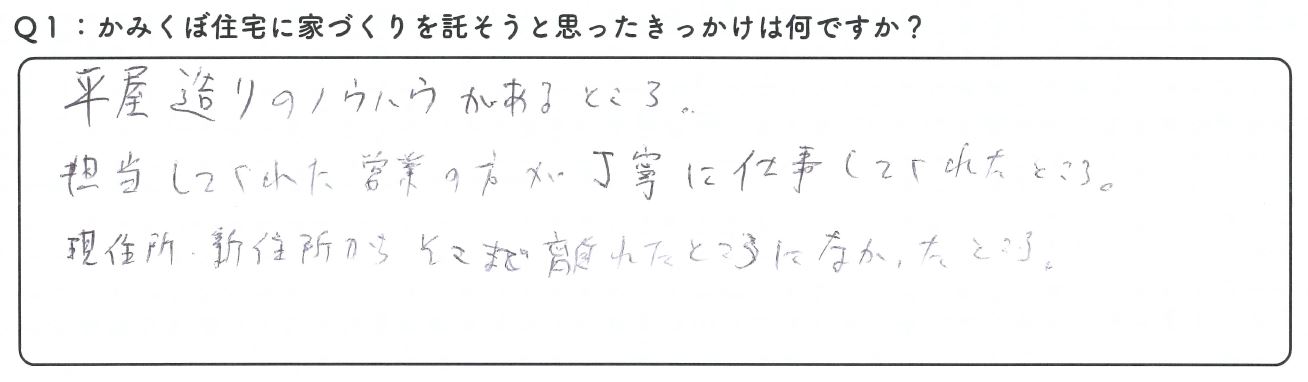 Q1：かみくぼ住宅に家づくりを託そうと思ったきっかけは何ですか？
平屋造りのノウハウがあるところ。
担当してくれた営業の方が丁寧に仕事してくれたところ。
現住所・新住所からそこまで離れたところになかったところ。